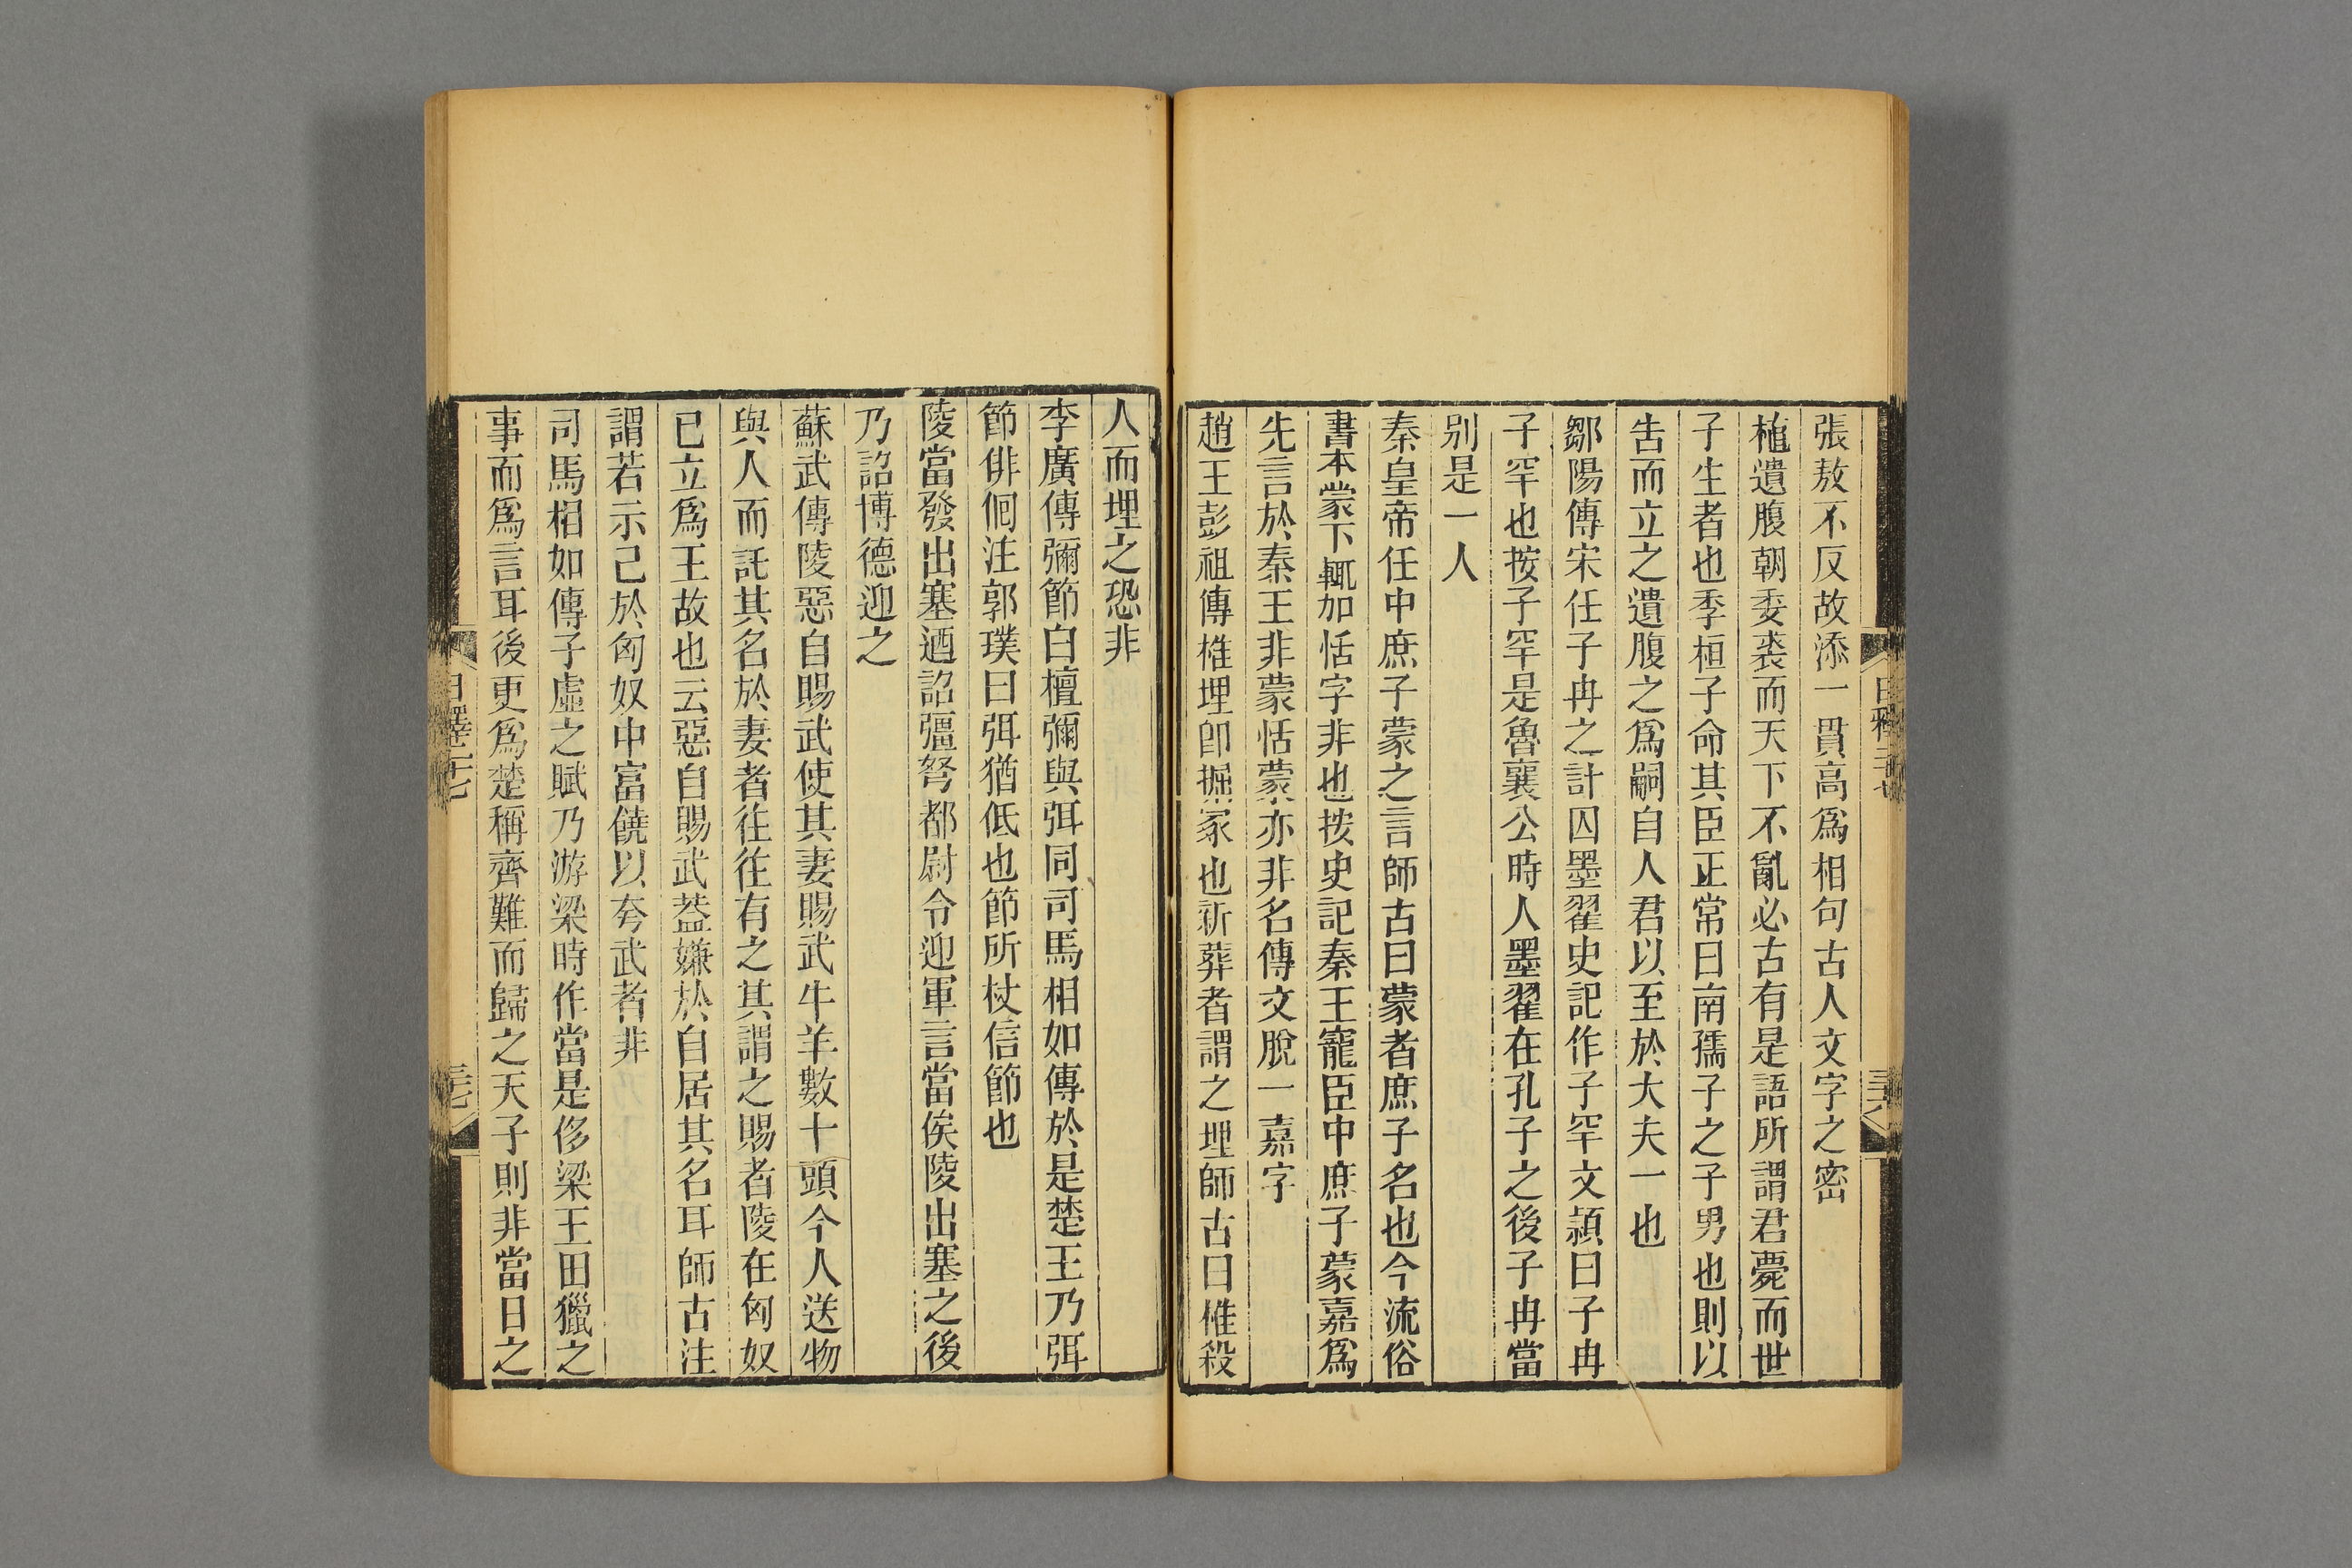 張敖不反故添一貫高爲相句古人文字之密
植遺腹朝委裘而天下不亂必古有是語所謂君薨而世
子生者也季桓子命其臣正常曰南孺子之子男也則以
告而立之遺腹之爲嗣自人君以至於大夫一也
鄒陽傳宋任子冉之計囚墨翟史記作子罕文頴曰子冉
子罕也按子罕是魯襄公時人墨翟在孔子之後子冉當
别是一人
秦皇帝任中庶子蒙之言師古曰蒙者庶子名也今流俗
書本蒙下輒加恬字非也按史記秦王寵臣中庶子蒙嘉爲
先言於秦王非蒙恬蒙亦非名傳文脫一嘉字
趙王彭祖傳椎埋卽掘冢也新葬者謂之埋師古曰椎殺
人而埋之恐非
李廣傳彌節白檀彌與弭同司馬相如傳於是楚王乃弭
節俳佪注郭璞曰弭猶低也節所杖信節也
陵當發出塞迺詔彊弩都尉令迎軍言當俟陵出塞之後
乃詔博德迎之
蘇武傳陵惡自賜武使其妻賜武牛羊數十頭今人送物
與人而託其名於妻者往往有之其謂之賜者陵在匈奴
已立爲王故也云惡自賜武葢嫌於自居其名耳師古注
謂若示己於匈奴中富饒以夸武者非
司馬相如傳子虛之賦乃游梁時作當是侈梁王田獵之
事而爲言耳後更爲楚稱齊難而歸之天子則非當日之